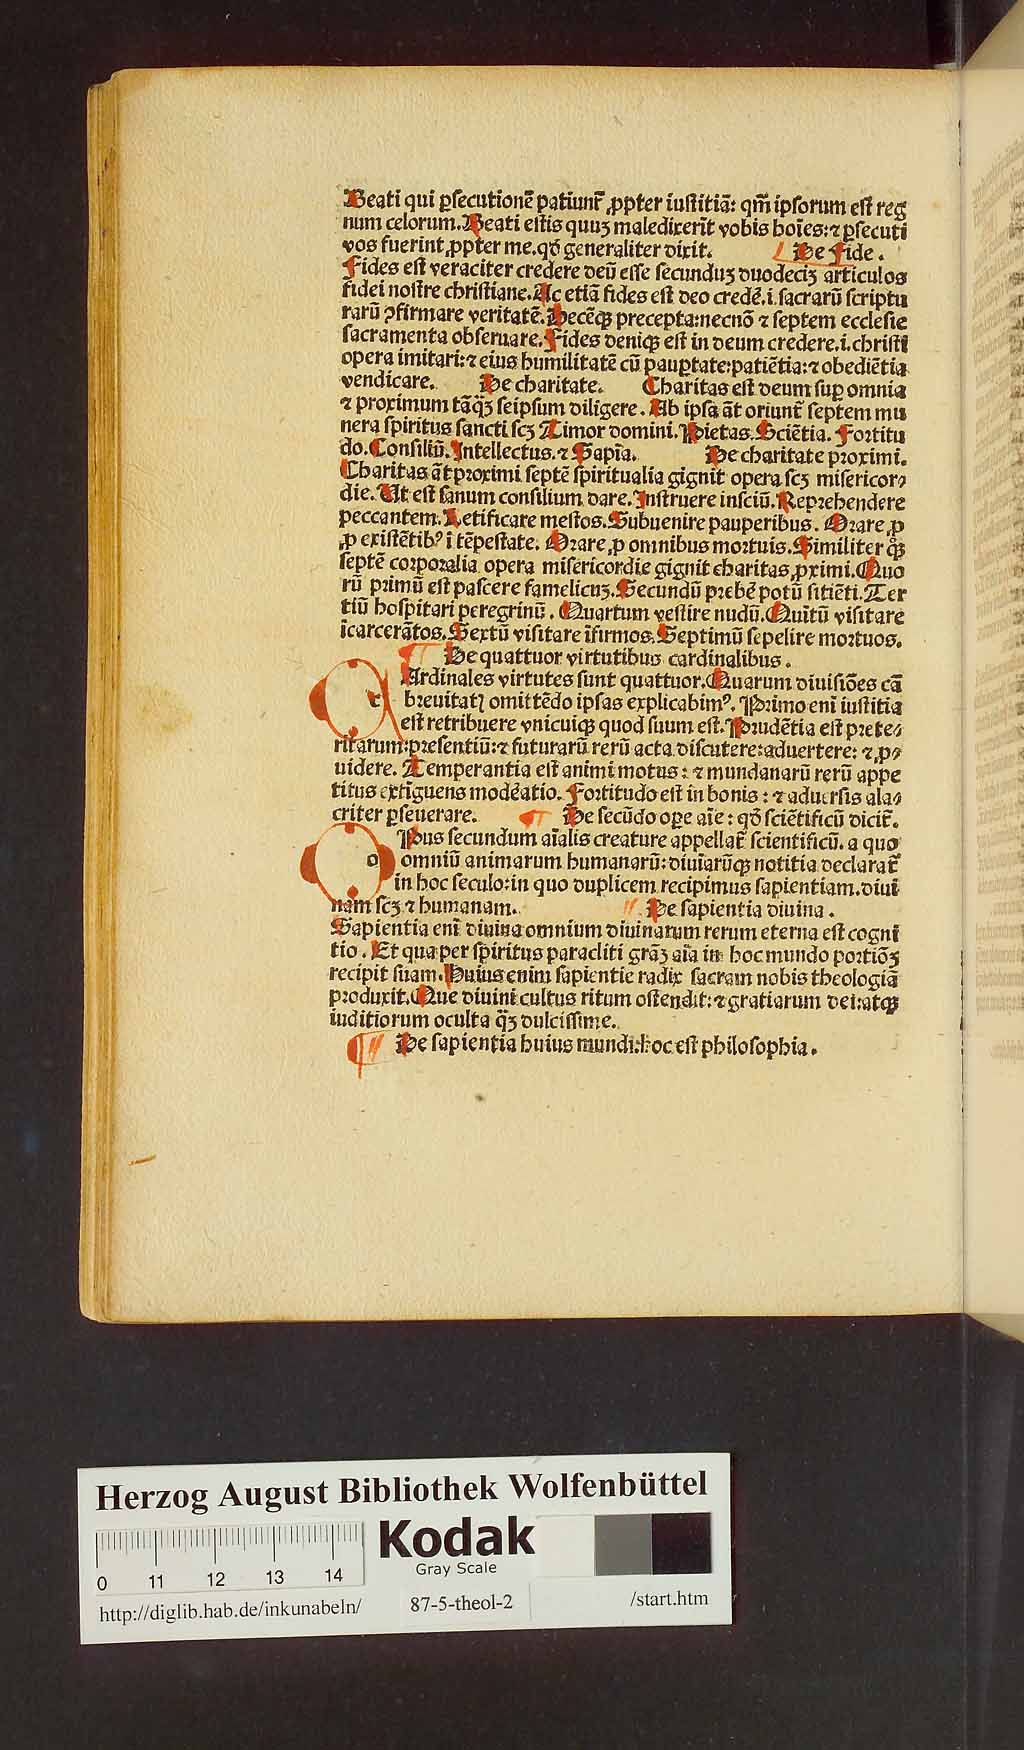 Beati qui ꝑsecutionē patiunt᷑ ꝓpter iustitiā: qm̄ ipsorum est reg
num celorum. Beati estis quuꝫ maledixerīt vobis hoīes: ⁊ ꝑsecuti
vos fuerint ꝓpter me. qđ generaliter dixit. De Fide.
Fides est veraciter credere deū esse secunduꝫ duodeciꝫ articulos
fidei nostre christiane. Ac etiā fides est deo credē .i. sacrarū scriptu
rarū ꝯfirmare veritatē. Decēqꝫ precepta: necnō ⁊ septem ecclesie
sacramenta obseruare. Fides deniqꝫ est in deum credere .i. christi
opera imitari: ⁊ eius humilitatē cū pauꝑtate: patiētia: ⁊ obediētia
vendicare. De charitate. Charitas est deum suꝑ omnia
⁊ proximum tāq̄ꝫ seipsum diligere. Ab ipsa āt oriunt᷑ septem mu
nera spiritus sancti scꝫ Timor domini. Pietas. Sciētia. Fortitu
do. Consiliū. Intellectus. ⁊ Sapīa. De charitate proximi.
Charitas āt proximi septē spiritualia gignit opera scꝫ misericor⸗
die. Ut est sanum consilium dare. Instruere insciū. Reprehendere
peccantem. Letificare mestos. Subuenire pauperibus. Orare ꝓ
ꝓ existētibꝰ ī tēpestate. Orare ꝓ omnibus mortuis. Similiter qͦꝫ
septē corporalia opera misericordie gignit charitas ꝓximi. Quo
rū primū est pascere famelicuꝫ. Secundū prebē potū sitiēti. Ter
tiū hospitari peregrinū. Quartum vestire nudū. Quītū visitare
īcarcerātos. Sextū visitare īfirmos. Septimū sepelire mortuos.
De quattuor virtutibus cardinalibus.
cArdinales virtutes sunt quattuor. Quarum diuisiōes cā
breuitatꝭ omittēdo ipsas explicabimꝰ. Primo eni iustitia
est retribuere vnicuiqꝫ quod suum est. Prudētia est prete⸗
ritarum: presentiū: ⁊ futurarū rerū acta discutere: aduertere: ⁊ ꝓ⸗
uidere. Temperantia est animi motus: ⁊ mundanarū rerū appe
titus extīguens modēatio. Fortitudo est in bonis: ⁊ aduersis ala⸗
criter ꝑseuerare. De secūdo oꝑe aīe: qđ sciētificū dicit᷑.
oPus secundum aīalis creature appellat᷑ scientificū. a quo
omniū animarum humanarū: diuīarūqꝫ notitia declarat᷑
in hoc seculo: in quo duplicem recipimus sapientiam. diui
nam scꝫ ⁊ humanam. De sapientia diuina.
Sapientia enī diuina omnium diuinarum rerum eterna est cogni
tio. Et qua per spiritus paracliti grāꝫ aīa in hoc mundo portiōꝫ
recipit suam. Huius enim sapientie radix sacram nobis theologiā
produxit. Que diuini cultus ritum ostendit: ⁊ gratiarum dei: atqꝫ
iuditiorum oculta q̄ꝫ dulcissime.
De sapientia huius mundi: hoc est philosophia.
Herzog August Bibliothek Wolfenbüttel
Kodak
Gray Scale
0 11 12 13 14
http://diglib.hab.de/inkunabeln/ 87-5-theol-2 /start.htm